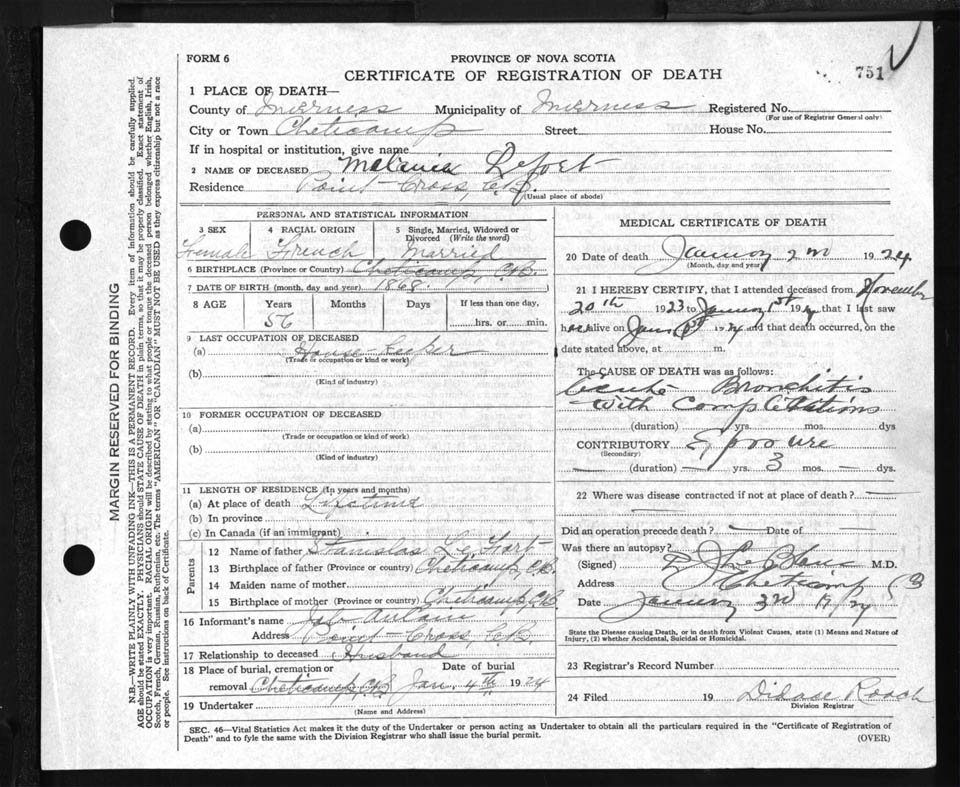 FORM 6
PROVINCE OF NOVA SCOTIA
CERTIFICATE OF REGISTRATION OF DEATH
751
1 PLACE OF DEATH—
County of Inverness Municipality of Inverness Registered No.
(For use of Registrar General only)
City or Town Cheticamp Street House No.
If in hospital or institution, give name
2 NAME OF DECEASED Melanie Lefort
Residence Point-Cross, C.B.
(Usual place of abode)
PERSONAL AND STATISTICAL INFORMATION
3 SEX 4 RACIAL ORIGIN 5 Single, Married, Widowed or Divorced (Write the word)
Female French Married
6 BIRTHPLACE (Province or Country) Cheticamp, C.B.
7 DATE OF BIRTH (month, day and year) 1868
8 AGE Years Months Days If less than one day,
56 hrs. or min.
9 LAST OCCUPATION OF DECEASED
(a) House-Keeper
(Trade or occupation or kind or work)
(b)
(Kind of industry)
10 FORMER OCCUPATION OF DECEASED
(a)
(Trade or occupation or kind of work)
(b)
(Kind of industry)
11 LENGTH OF RESIDENCE (In years and months)
(a) At place of death Lifetime
(b) In province
(c) In Canada (if an immigrant)
Parents
12 Name of father Stanislas Le Fort
13 Birthplace of father (Province or country) Cheticamp, C.B.
14 Maiden name of mother
15 Birthplace of mother (Province or country) Cheticamp C.B
16 Informant's name
Address Point-Cross, C.B.
17 Relationship to deceased Husband
18 Place of burial, cremation or Date of burial
removal Cheticamp C.B Jan. 4th 1924
19 Undertaker
(Name and Address)
MEDICAL CERTIFICATE OF DEATH
20 Date of death January 2nd 1924
(Month, day and year)
21 I HEREBY CERTIFY, that I attended deceased from November
20th 1923 to January 1st 24 that I last saw
alive on Jan 1st 1924 and that death occurred, on the
date stated above, at m.
The CAUSE OF DEATH was as follows:
Acute Bronchitis
with Complications
(duration) yrs. mos. dys
CONTRIBUTORY Exposure
(Secondary)
(duration) yrs. 3 mos. dys.
22 Where was disease contracted if not at place of death?
Did an operation precede death? Date of
Was there an autopsy?
(Signed) M.D.
Address Cheticamp CB
Date January 3rd 1924
State the Disease causing Death, or in death from Violent Causes, state (1) Means and Nature of
Injury, (2) whether Accidental, Suicidal or Homicidal.
23 Registrar's Record Number
24 Filed 19 Roach
Division Registrar
SEC. 46—Vital Statistics Act makes it the duty of the Undertaker or person acting as Undertaker to obtain all the particulars required in the "Certificate of Registration of
Death" and to fyle the same with the Division Registrar who shall issue the burial permit.
(OVER)
MARGIN RESERVED FOR BINDING
N.B.—WRITE PLAINLY WITH UNFADING INK—THIS IS A PERMANENT RECORD. Every item of information should be carefully supplied.
AGE should be stated EXACTLY. PHYSICIANS should STATE CAUSE OF DEATH in plain terms, so that it may be properly classified. Exact statement of
OCCUPATION is very important. RACIAL ORIGIN will be described by stating to what people or tongue the deceased person belonged whether English, Irish,
Scotch, French, German, Russian, Ruthenian, etc. The terms "AMERICAN" OR "CANADIAN" MUST NOT BE USED as they express citizenship but not a race
or people. See instructions on back of Certificate.